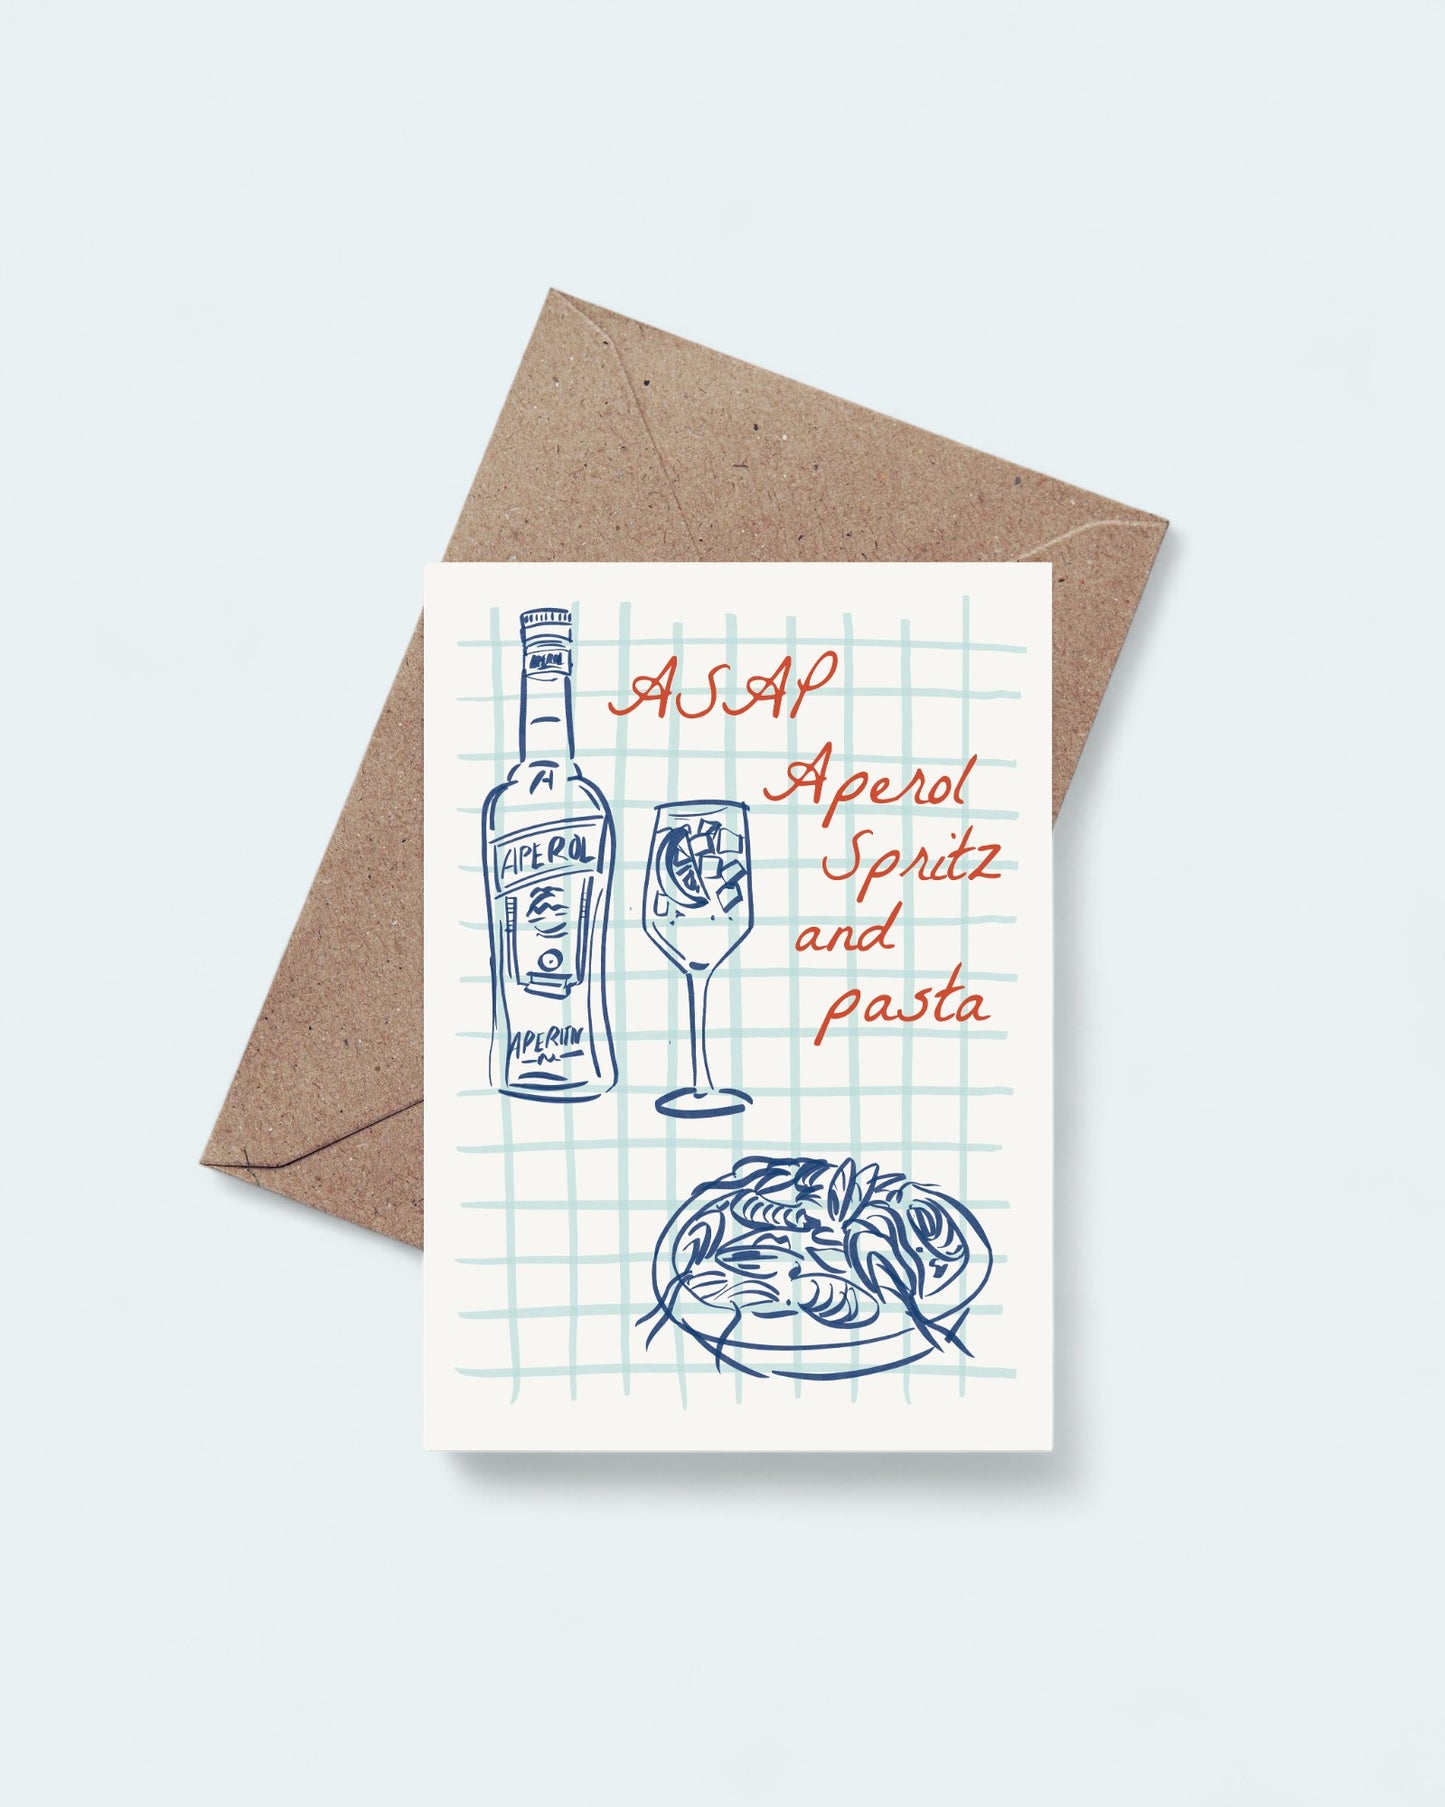 ASAP
Aperol
Spritz
and
pasta
APEROL
APEROL